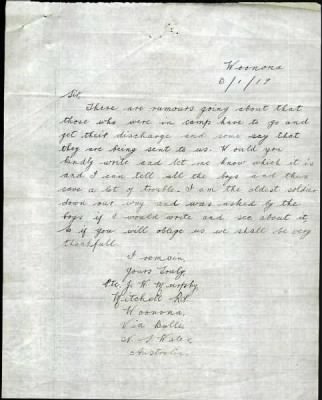 Woonona
3/1/19
Sir,
There are rumours going about that
those who were in camp have to go and
get their discharge and some say that
they are being sent to us. Would you
kindly write and let me know which it is
and I can tell all the boys and thus
save a lot of trouble. I am the oldest soldier
down our way and was asked by the
boys if I would write and see about it,
so if you will oblige us we shall be very
thankfull.
I remain,
Yours Truly,
Pte. J. W. Murphy
Mitchell Rd
Woonona.
Via Bulli
N. S Wales
Australia.